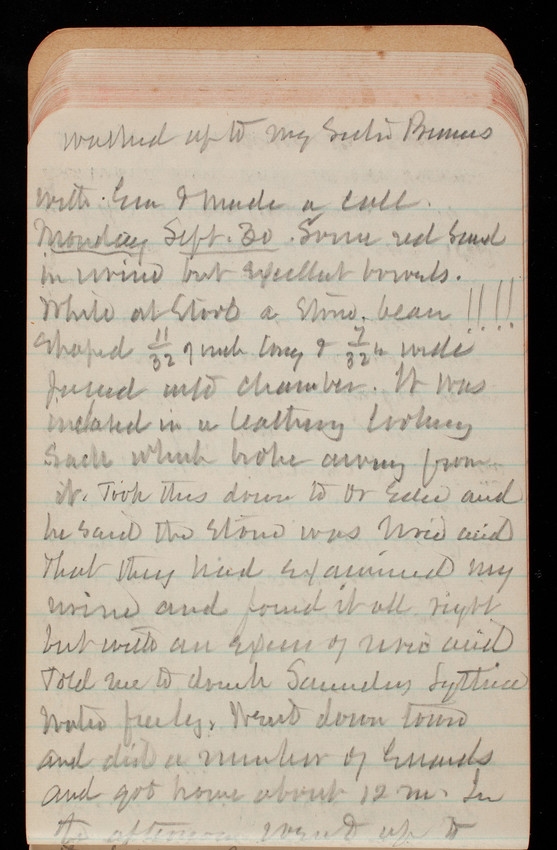 walked up to my Sister Brunus
with. Em I made a call.
Monday Sept. 30. Some red Sand
in urine but excellent bowels.
While at Stool a Stone, bean !!!!
Shaped 11/32 of inch long & 7/32 in wide
passed into chamber. It was
incased in a leathery looking
Sack which broke away from
it. Took this down to Dr and
he said the Stone was Uric acid
that they had examined my
urine and found it all right
but with an excess of uric acid
Told me to drink Saunders Lythia
Water freely. Went down town
and did a number of Errands
and got home about 12 m. In
the afternoon went up to